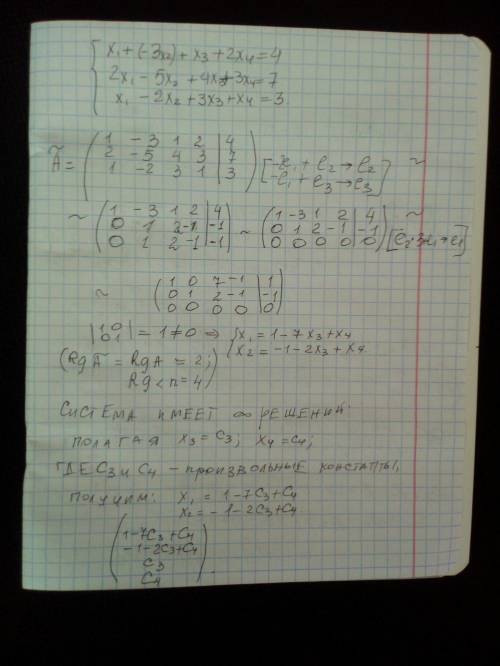 x₁+(-3x₂)+x₃+2x₄=4
2x₁-5x₂+4x₃+3x₄=7
x₁-2x₂+3x₃+x₄=3
Ã= ( 1 -3 1 2 | 4
2 -5 4 3 | 7
1 -2 3 1 | 3 ) [ -ℓ₁+ℓ₂→ℓ₂
-ℓ₁+ℓ₃→ℓ₃ ] ~
~ ( 1 -3 1 2 | 4
0 1 2 -1 | -1
0 1 2 -1 | -1 ) ~ ( 1 -3 1 2 | 4
0 1 2 -1 | -1
0 0 0 0 | 0 ) ~
~ ( 1 0 7 -1 | 1
0 1 2 -1 | -1
0 0 0 0 | 0 )
|1 0
0 1| = 1≠0 ⇒ { x₁=1-7x₃+x₄
x₂=-1-2x₃+x₄
(Rg Ã = Rg A = 2;
Rg < n=4)
Система имеет ∞ решений.
полагая x₃=C₃; x₄=C₄;
где C₃ и C₄ - произвольные константы,
получим: x₁ = 1-7C₃+C₄
x₂ = -1-2C₃+C₄
( 1-7C₃+C₄
-1-2C₃+C₄
C₃
C₄ ).